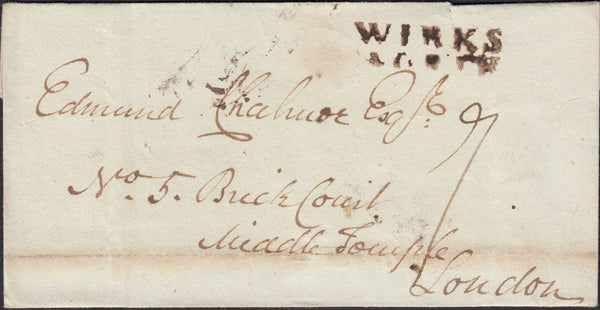 WIRKS
Edmund Esqr.
No. 5. Brick Court
Middle Temple
London